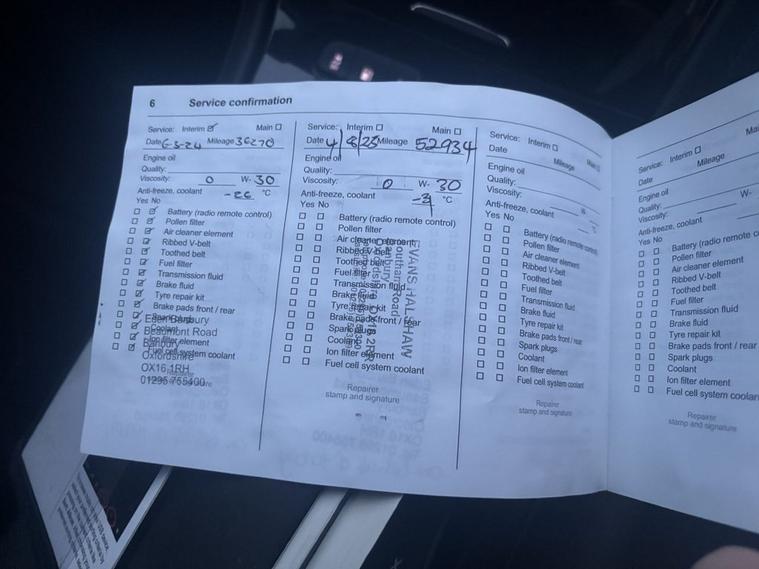 6 Service confirmation
Service: Interim ☑ Main ☐
Date 6-3-24 Mileage 36270
Engine oil
Quality:
Viscosity: 0 W- 30
Anti-freeze, coolant
-26 °C
Yes No
Battery (radio remote control)
Pollen filter
Air cleaner element
Ribbed V-belt
Toothed belt
Fuel filter
Transmission fluid
Brake fluid
Tyre repair kit
Brake pads front / rear
Spark plugs
Coolant
Ion filter element
Fuel cell system coolant
Banbury
Beaumont Road
Banbury
Oxfordshire
OX16 1RH
01295 755400
Service: Interim ☐ Main ☐
Date 4/8/25 Mileage 52934
Engine oil
Quality:
Viscosity: 0 W- 30
Anti-freeze, coolant
°C
Yes No
Battery (radio remote control)
Pollen filter
Air cleaner element
Ribbed V-belt
Toothed belt
Fuel filter
Transmission fluid
Brake fluid
Tyre repair kit
Brake pads front / rear
Spark plugs
Coolant
Ion filter element
Fuel cell system coolant
EVANS HALSHAW
Southam Road
Banbury
Repairer
stamp and signature
Service: Interim ☐ Main ☐
Date Mileage
Engine oil
Quality:
Viscosity: W-
Anti-freeze, coolant °C
Yes No
Battery (radio remote control)
Pollen filter
Air cleaner element
Ribbed V-belt
Toothed belt
Fuel filter
Transmission fluid
Brake fluid
Tyre repair kit
Brake pads front / rear
Spark plugs
Coolant
Ion filter element
Fuel cell system coolant
Repairer
stamp and signature
Service: Interim ☐
Date Mileage
Engine oil
Quality:
Viscosity: W-
Anti-freeze, coolant
Yes No
Battery (radio remote
Pollen filter
Air cleaner element
Ribbed V-belt
Toothed belt
Fuel filter
Transmission fluid
Brake fluid
Tyre repair kit
Brake pads front / rear
Spark plugs
Coolant
Ion filter element
Fuel cell system coolant
Repairer
stamp and signature